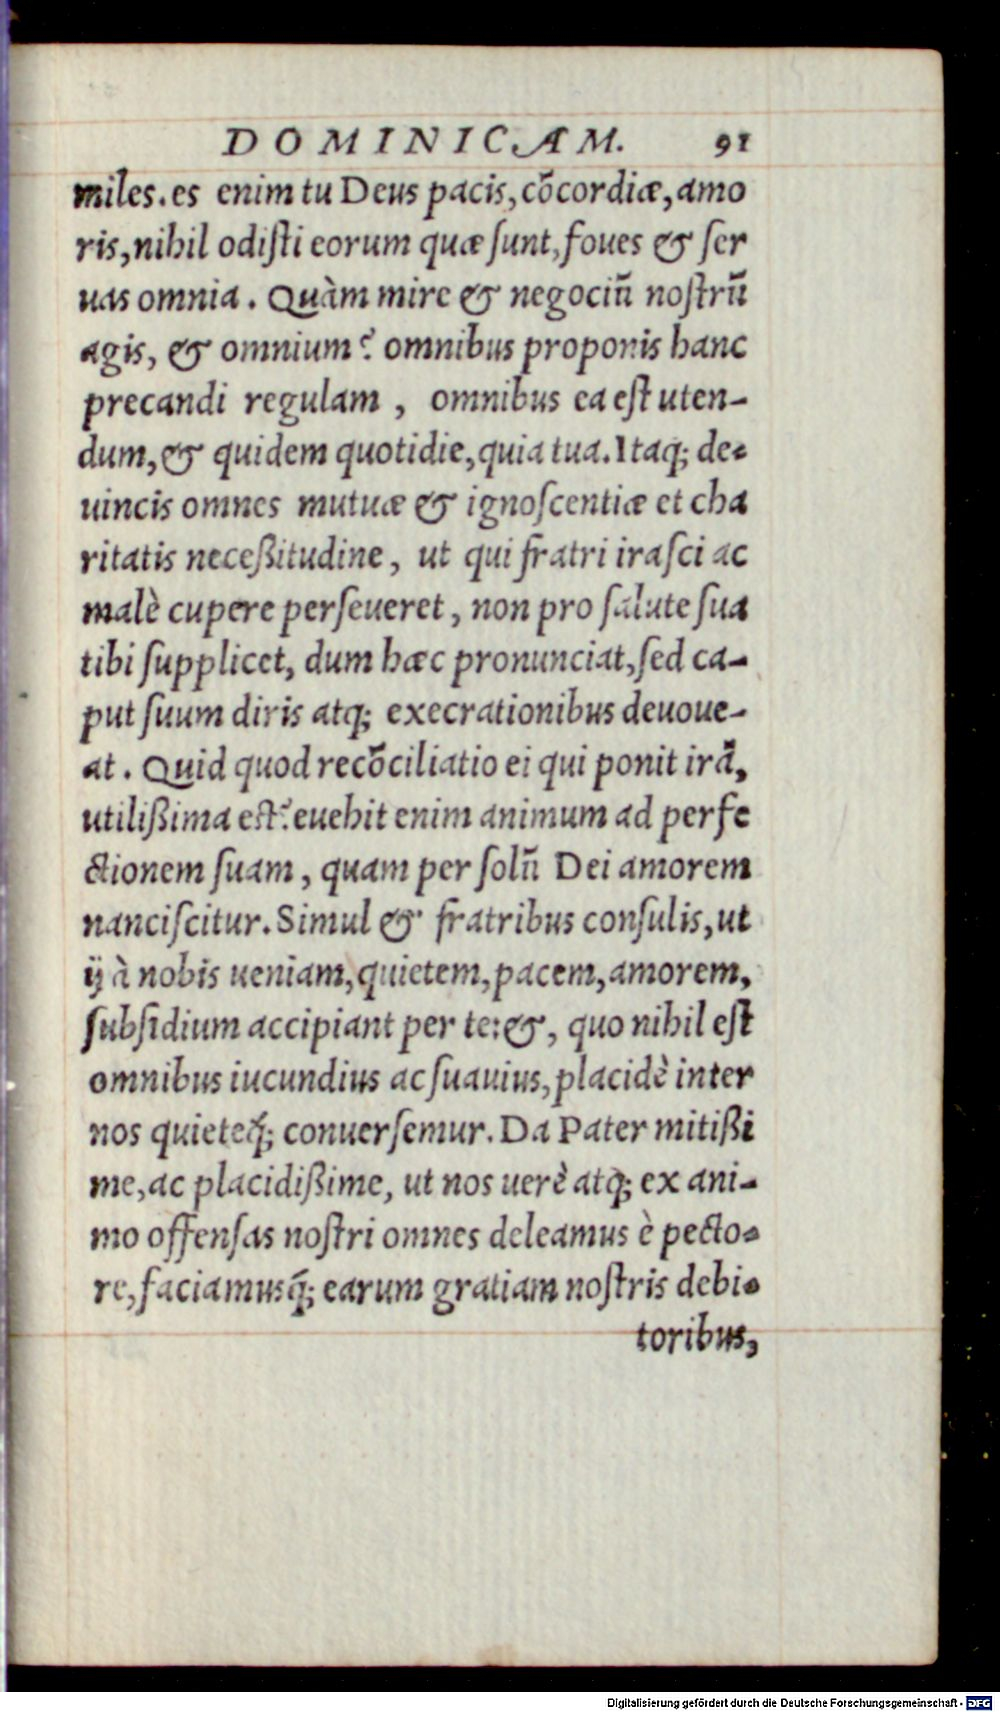 DOMINICAM. 91
miles. es enim tu Deus pacis, cõcordiæ, amo
ris, nihil odiſti eorum quæ ſunt, foues & ſer
uas omnia. Quàm mire & negociũ noſtrũ
agis, & omnium? omnibus proponis hanc
precandi regulam, omnibus ea eſt uten-
dum, & quidem quotidie, quia tua. Itaq; de-
uincis omnes mutuæ & ignoſcentiæ et cha
ritatis neceßitudine, ut qui fratri iraſci ac
malè cupere perſeueret, non pro ſalute ſua
tibi ſupplicet, dum hæc pronunciat, ſed ca-
put ſuum diris atq; execrationibus deuoue-
at. Quid quod recõciliatio ei qui ponit irã,
utilißima eſt? euehit enim animum ad perfe
ctionem ſuam, quam per ſolũ Dei amorem
nanciſcitur. Simul & fratribus conſulis, ut
ij à nobis ueniam, quietem, pacem, amorem,
ſubſidium accipiant per te: &, quo nihil eſt
omnibus iucundius ac ſuauius, placidè inter
nos quieteq́; conuerſemur. Da Pater mitißi
me, ac placidißime, ut nos uerè atq; ex ani-
mo offenſas noſtri omnes deleamus è pecto-
re, faciamusq́; earum gratiam noſtris debi-
toribus,
Digitalisierung gefördert durch die Deutsche Forschungsgemeinschaft - DFG